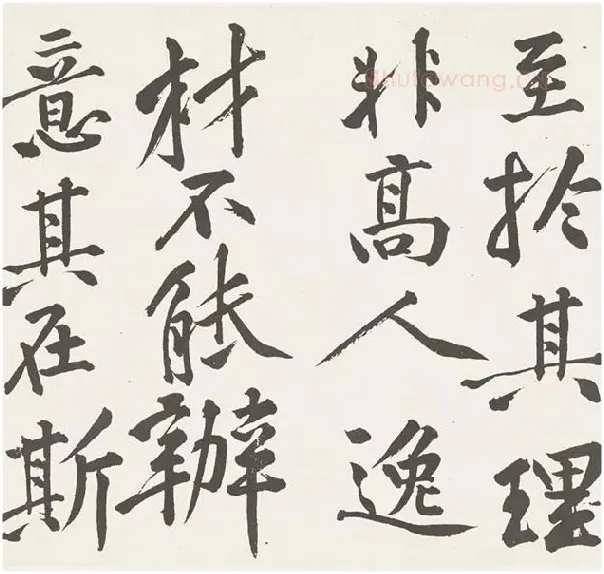 至於其理
非髙人逸
材不能辦
意其在斯
shufawang.cn